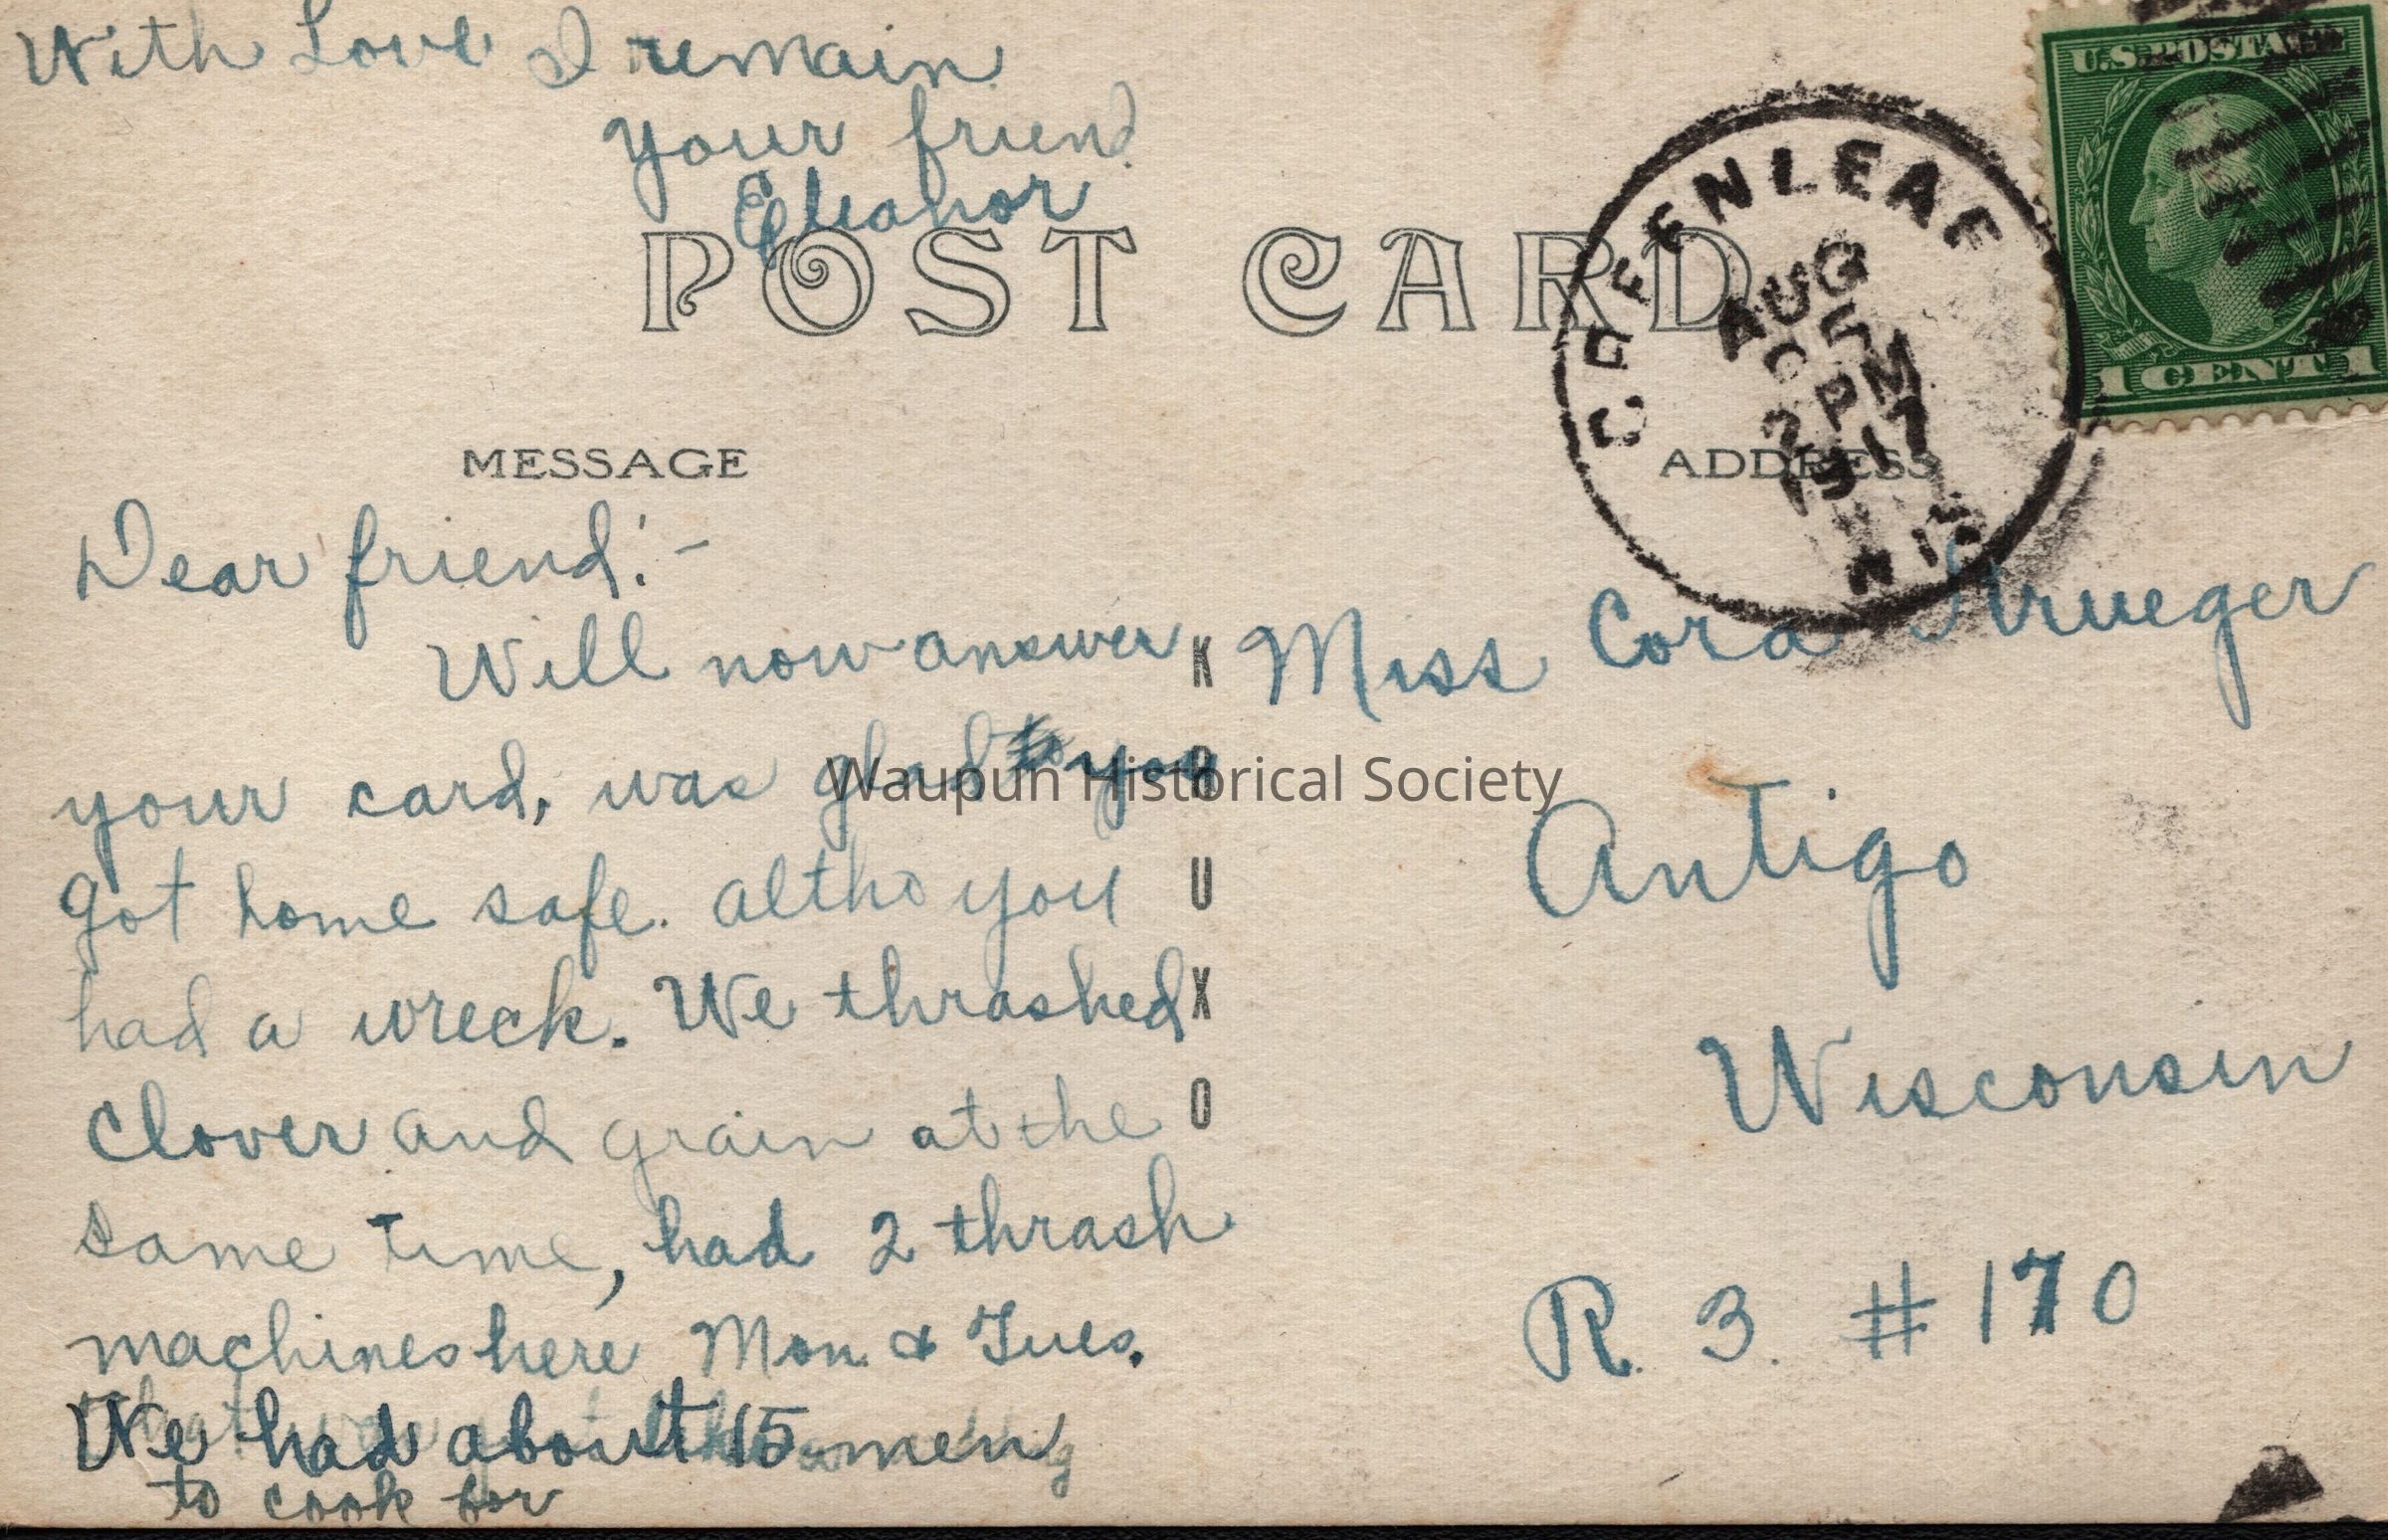 With Love I remain
your friend
Eleanor
POST CARD
U.S. POSTAGE
1 CENT 1
GREENLEAF
AUG
2 PM
1917
WIS
MESSAGE
ADDRESS
Dear friend:-
Will now answer
your card, was glad you
got home safe. altho you
had a wreck. We thrashed
Clover and grain at the
same time, had 2 thrash
machines here Mon. & Tues.
We had about 15 men
to cook for
KRUXO
Miss Cora Krueger
Antigo
Wisconsin
R. 3. #170
Waupun Historical Society